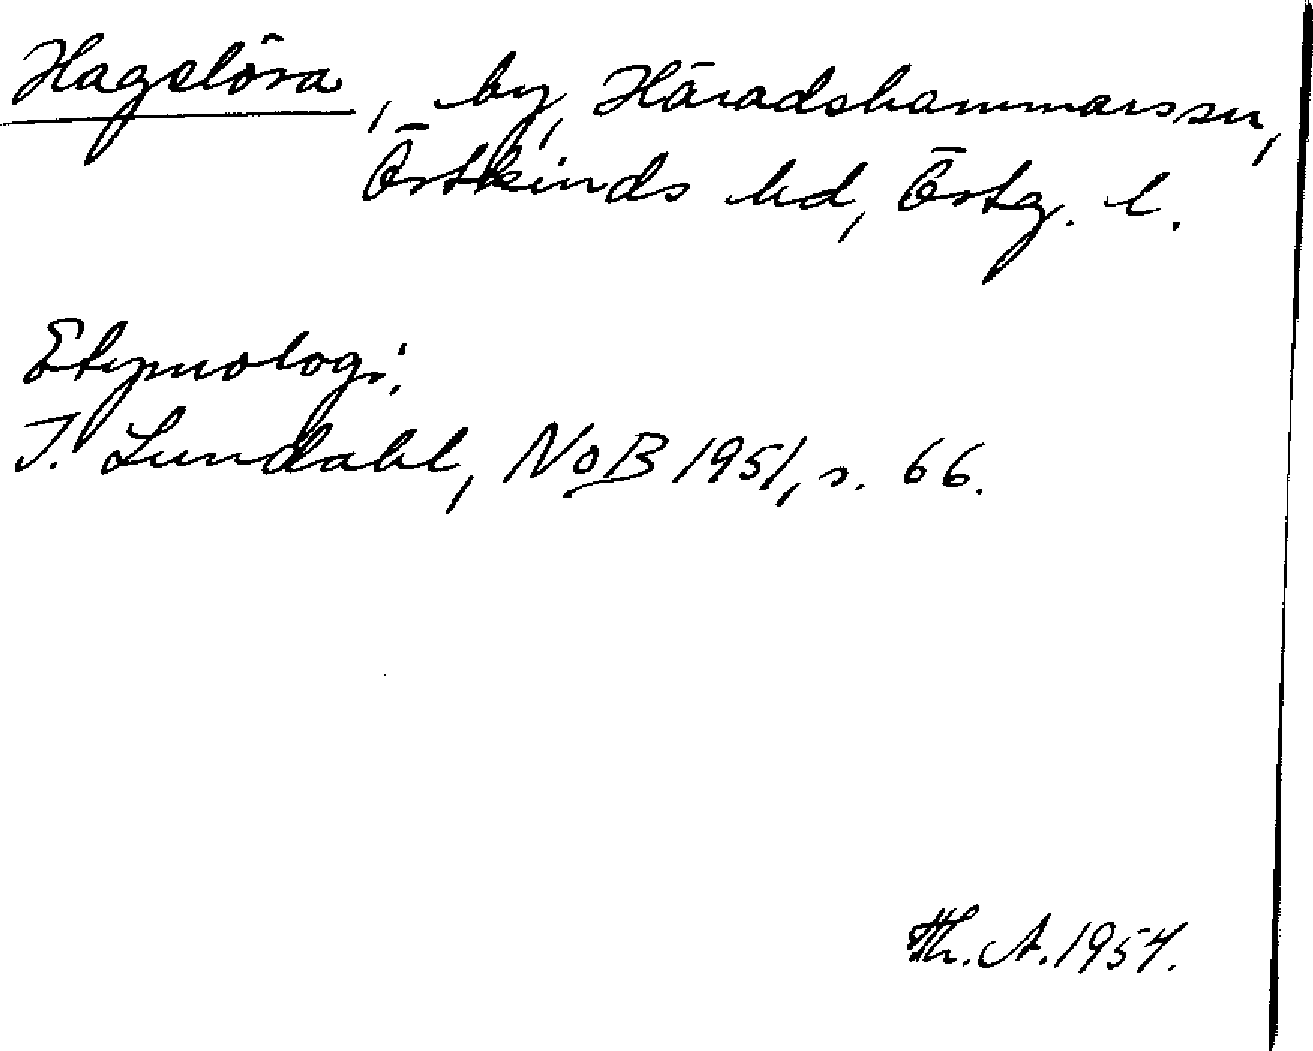 Hagslöra, by, Häradshammars sn,
Östkinds hd, Östg. l.
Etymologi:
I. Lundahl, NoB 1951, s. 66.
Th. A. 1954.